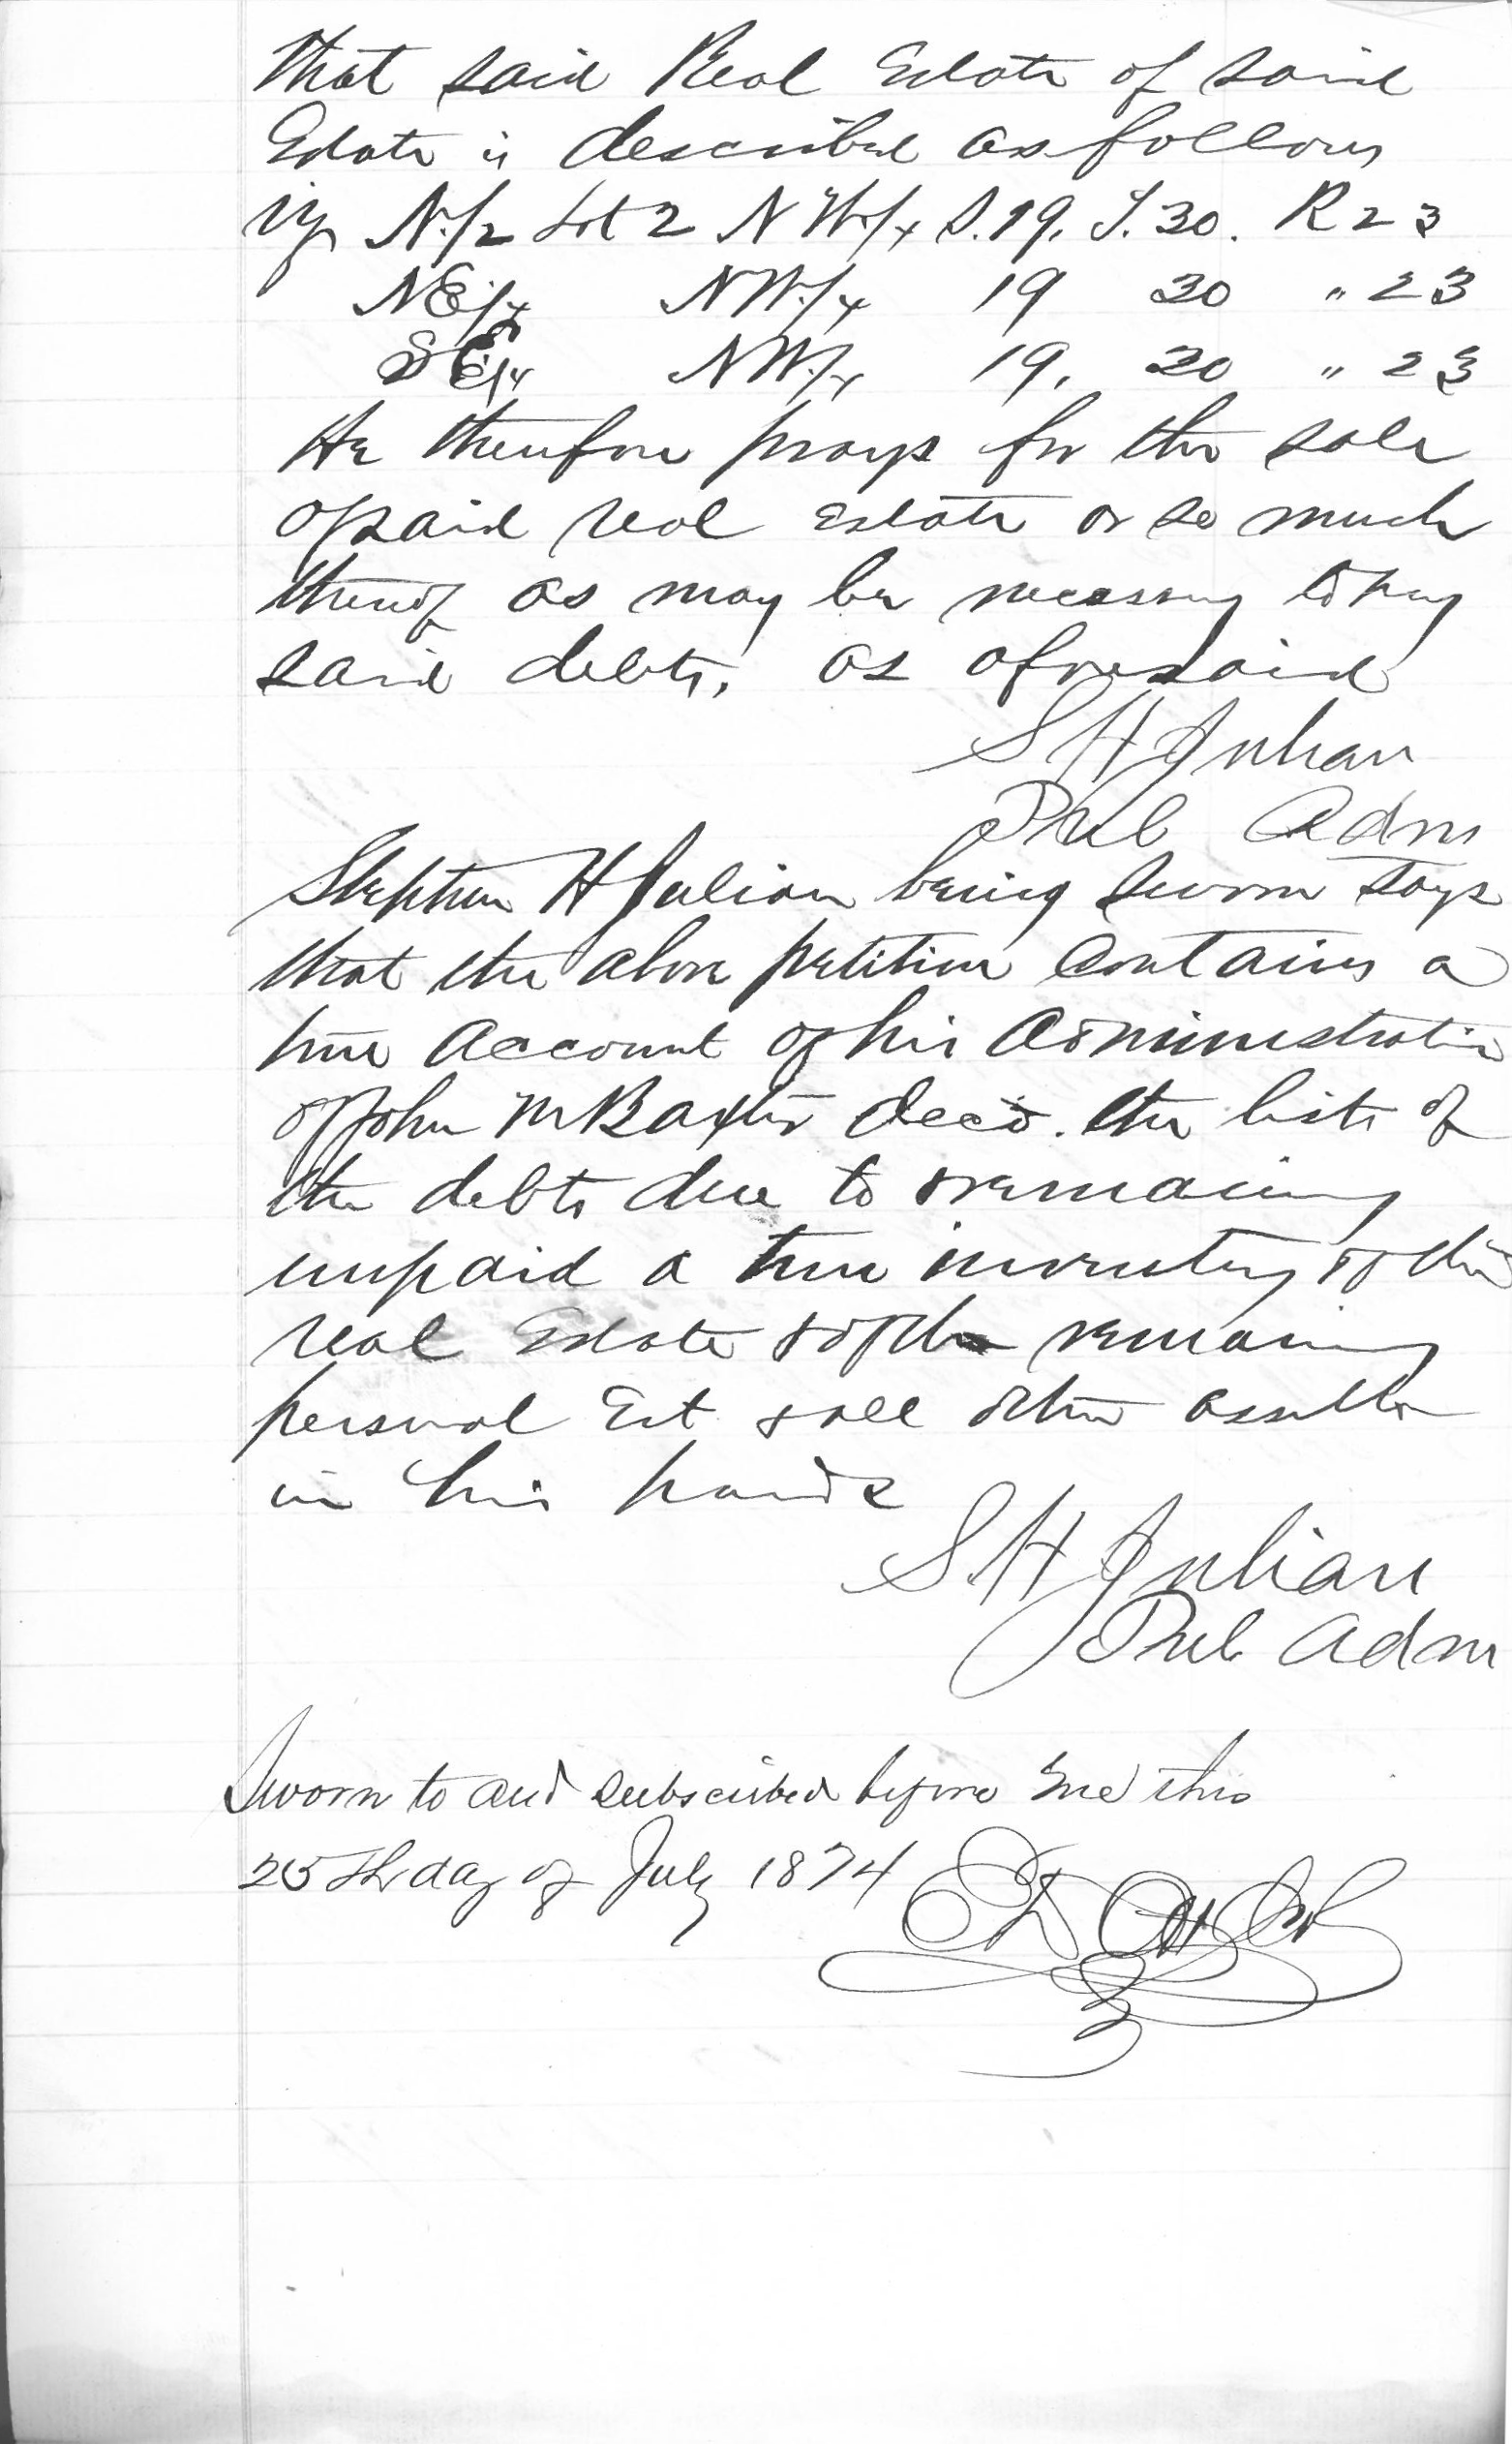 that said Real Estate of said
Estate is described as follows
viz N.1/2 Lot 2 N W.1/4 S. 19. T. 30. R 23
NE.1/4 NW.1/4 19 30 " 23
SE1/4 NW.1/4 19. 30 " 23
He therefore prays for the sale
of said real Estate or so much
thereof as may be necessary to pay
said debts, as aforesaid
S H Julian
Pub Adm
Stephen H Julian being sworn says
that the above petition contains a
true account of his administration
of John M Baxter Decd. the lists of
the debts due to & remaining
unpaid a true inventory of the
real Estate & of the remaining
personal Est & all other assetts
in his hands
S H Julian
Pub Adm
Sworn to and subscribed before me this
25th day of July 1874